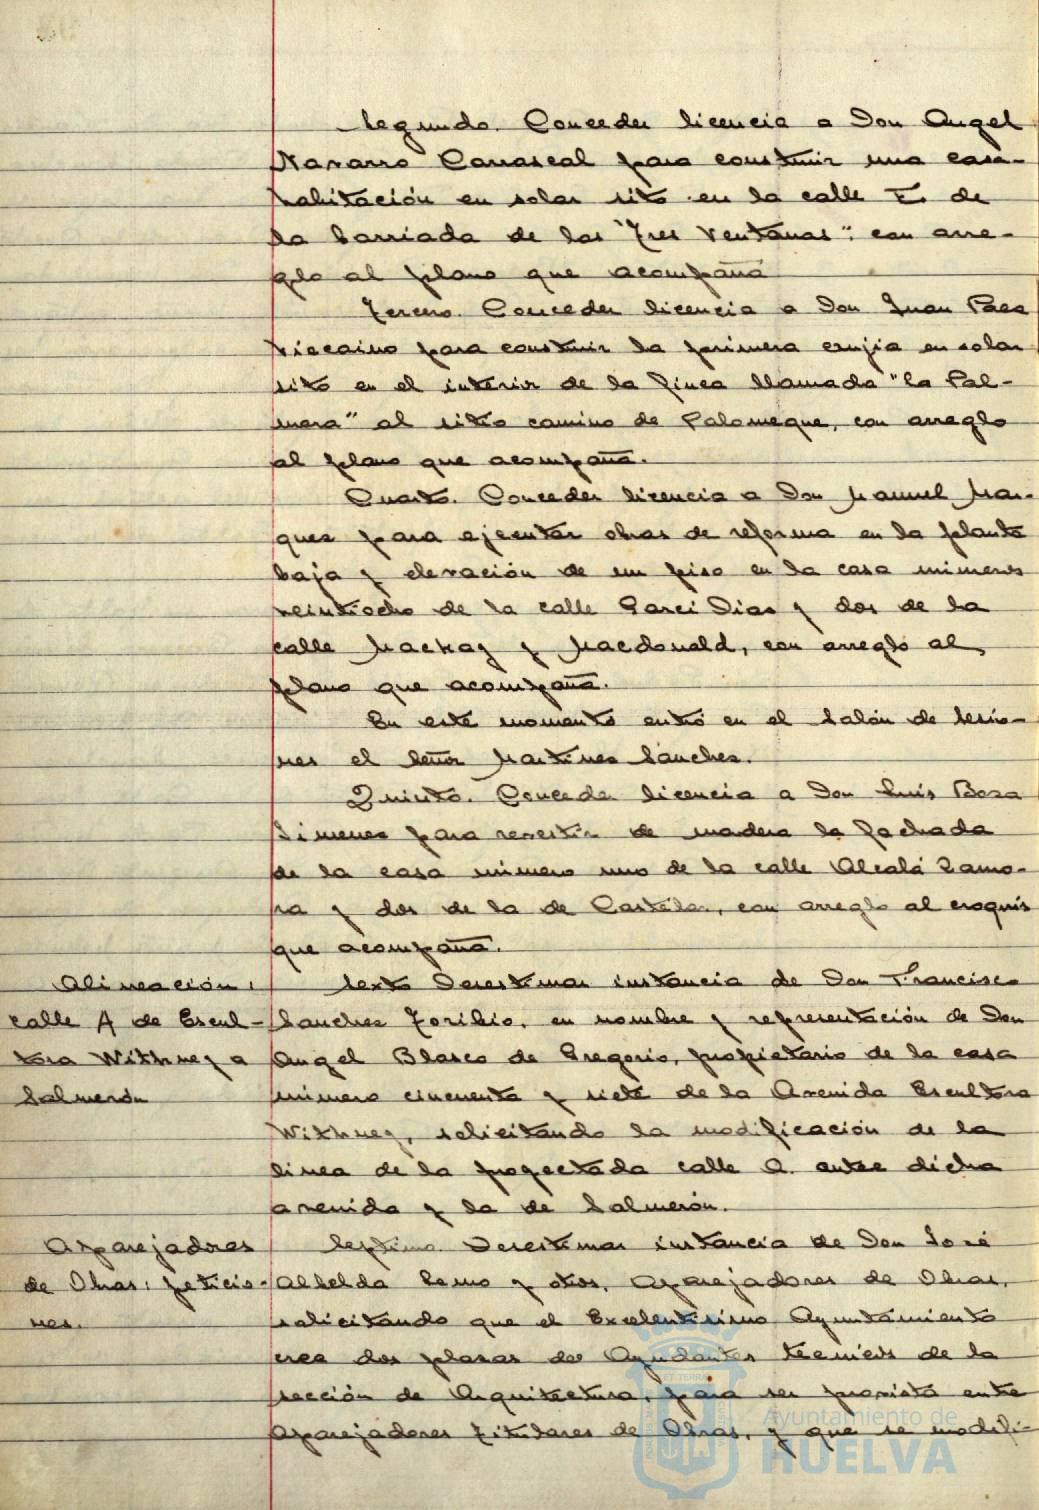 Segundo. Conceder licencia a Don Angel
Navarro Carrascal para construir una casa-
habitación en solar sito en la calle E. de
la barriada de las "Tres Ventanas": con arre-
glo al plano que acompaña
Tercero. Conceder licencia a Don Juan Paea
Viscaino para construir la primera crujia en solar
sito en el interior de la finca llamada "la Pal-
mera" al sitio camino de Palomeque, con arreglo
al plano que acompaña.
Cuarto. Conceder licencia a Don Manuel Mar-
ques para ejecutar obras de reforma en la planta
baja y elevación de un piso en la casa número
veintiocho de la calle Garci Dias y dos de la
calle Mackay y Macdonald, con arreglo al
plano que acompaña.
En este momento entró en el Salón de Sesio-
nes el Señor Martines Sanches.
Quinto. Conceder licencia a Don Luis Boza
Simenes para revestir de madera la fachada
de la casa número uno de la calle Alcalá Zamo-
ra y dos de la de Castelar, con arreglo al croquis
que acompaña.
Alineación:
calle A de Escul-
tora Withney a
Salmerón
Sexto Desestimar instancia de Don Francisco
Sanches Toribio, en nombre y representación de Don
Angel Blasco de Gregorio, propietario de la casa
número cincuenta y siete de la Avenida Escultora
Withney, solicitando la modificación de la
linea de la proyectada calle A. entre dicha
avenida y la de Salmerón.
Aparejadores
de Obras: peticio-
nes.
Septimo Desestimar instancia de Don José
Albelda y otros, Aparejadores de Obras,
solicitando que el Excelentisimo Ayuntamiento
cree dos plazas de Ayudantes técnicos de la
sección de Arquitectura, para ser provista entre
Aparejadores Titulares de Obras, y que se modifi-
Ayuntamiento de
HUELVA